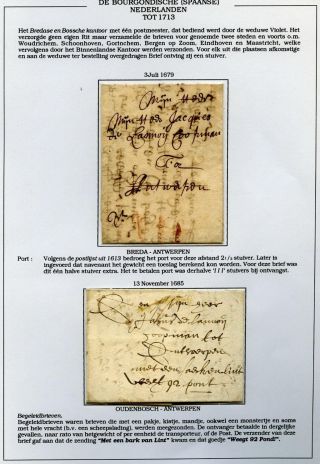 DE BOURGONDISCHE (SPAANSE)
NEDERLANDEN
TOT 1713
Het Bredase en Bossche kantoor met één postmeester, dat bediend werd door de weduwe Violet. Het
verzorgde geen eigen Rit maar verzamelde de brieven voor genoemde twee steden en voorts o.m.
Woudrichem, Schoonhoven, Gorinchem, Bergen op Zoom, Eindhoven en Maastricht, welke
vervolgens door het Binnenlandse Kantoor werden verzonden. Voor elk uit die plaatsen afkomstige
en aan de weduwe ter bestelling overgedragen Brief ontving zij een stuiver.
3 Juli 1679
Mijn Heer
Mijn Heer Jacques
de Lannoij Coopman
Tot
Antwerpen
BREDA - ANTWERPEN
Port : Volgens de postlijst uit 1613 bedroeg het port voor deze afstand 2 1/2 stuiver. Later is
ingevoerd dat navenant het gewicht een toeslag berekend kon worden. Voor deze brief was
dit één halve stuiver extra. Het te betalen port was derhalve 'I I I' stuivers bij ontvangst.
13 November 1685
coopman tot
Antwerpen
met een
weegt 92 pont
OUDENBOSCH - ANTWERPEN
Begeleidbrieven.
Begeleidbrieven waren brieven die met een pakje, kistje, mandje, ookwel een monstertje en soms
met hele vracht (b.v. een scheepslading), werden meegezonden. De ontvanger betaalde in dergelijke
gevallen, naar rato van hetgewicht of per eenheid de transporteur, of de Post. De verzender van deze
brief gaf aan dat de zending "Met een bark van Lint" kwam en dat goedje "Weegt 92 Pond!".